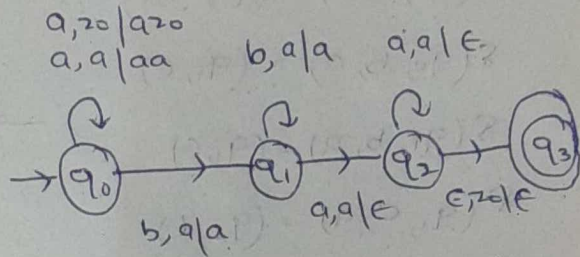 a,z0|az0
a,a|aa b,a|a a,a|ε
q0 q1 q2 q3
b,a|a a,a|ε ε,z0|ε